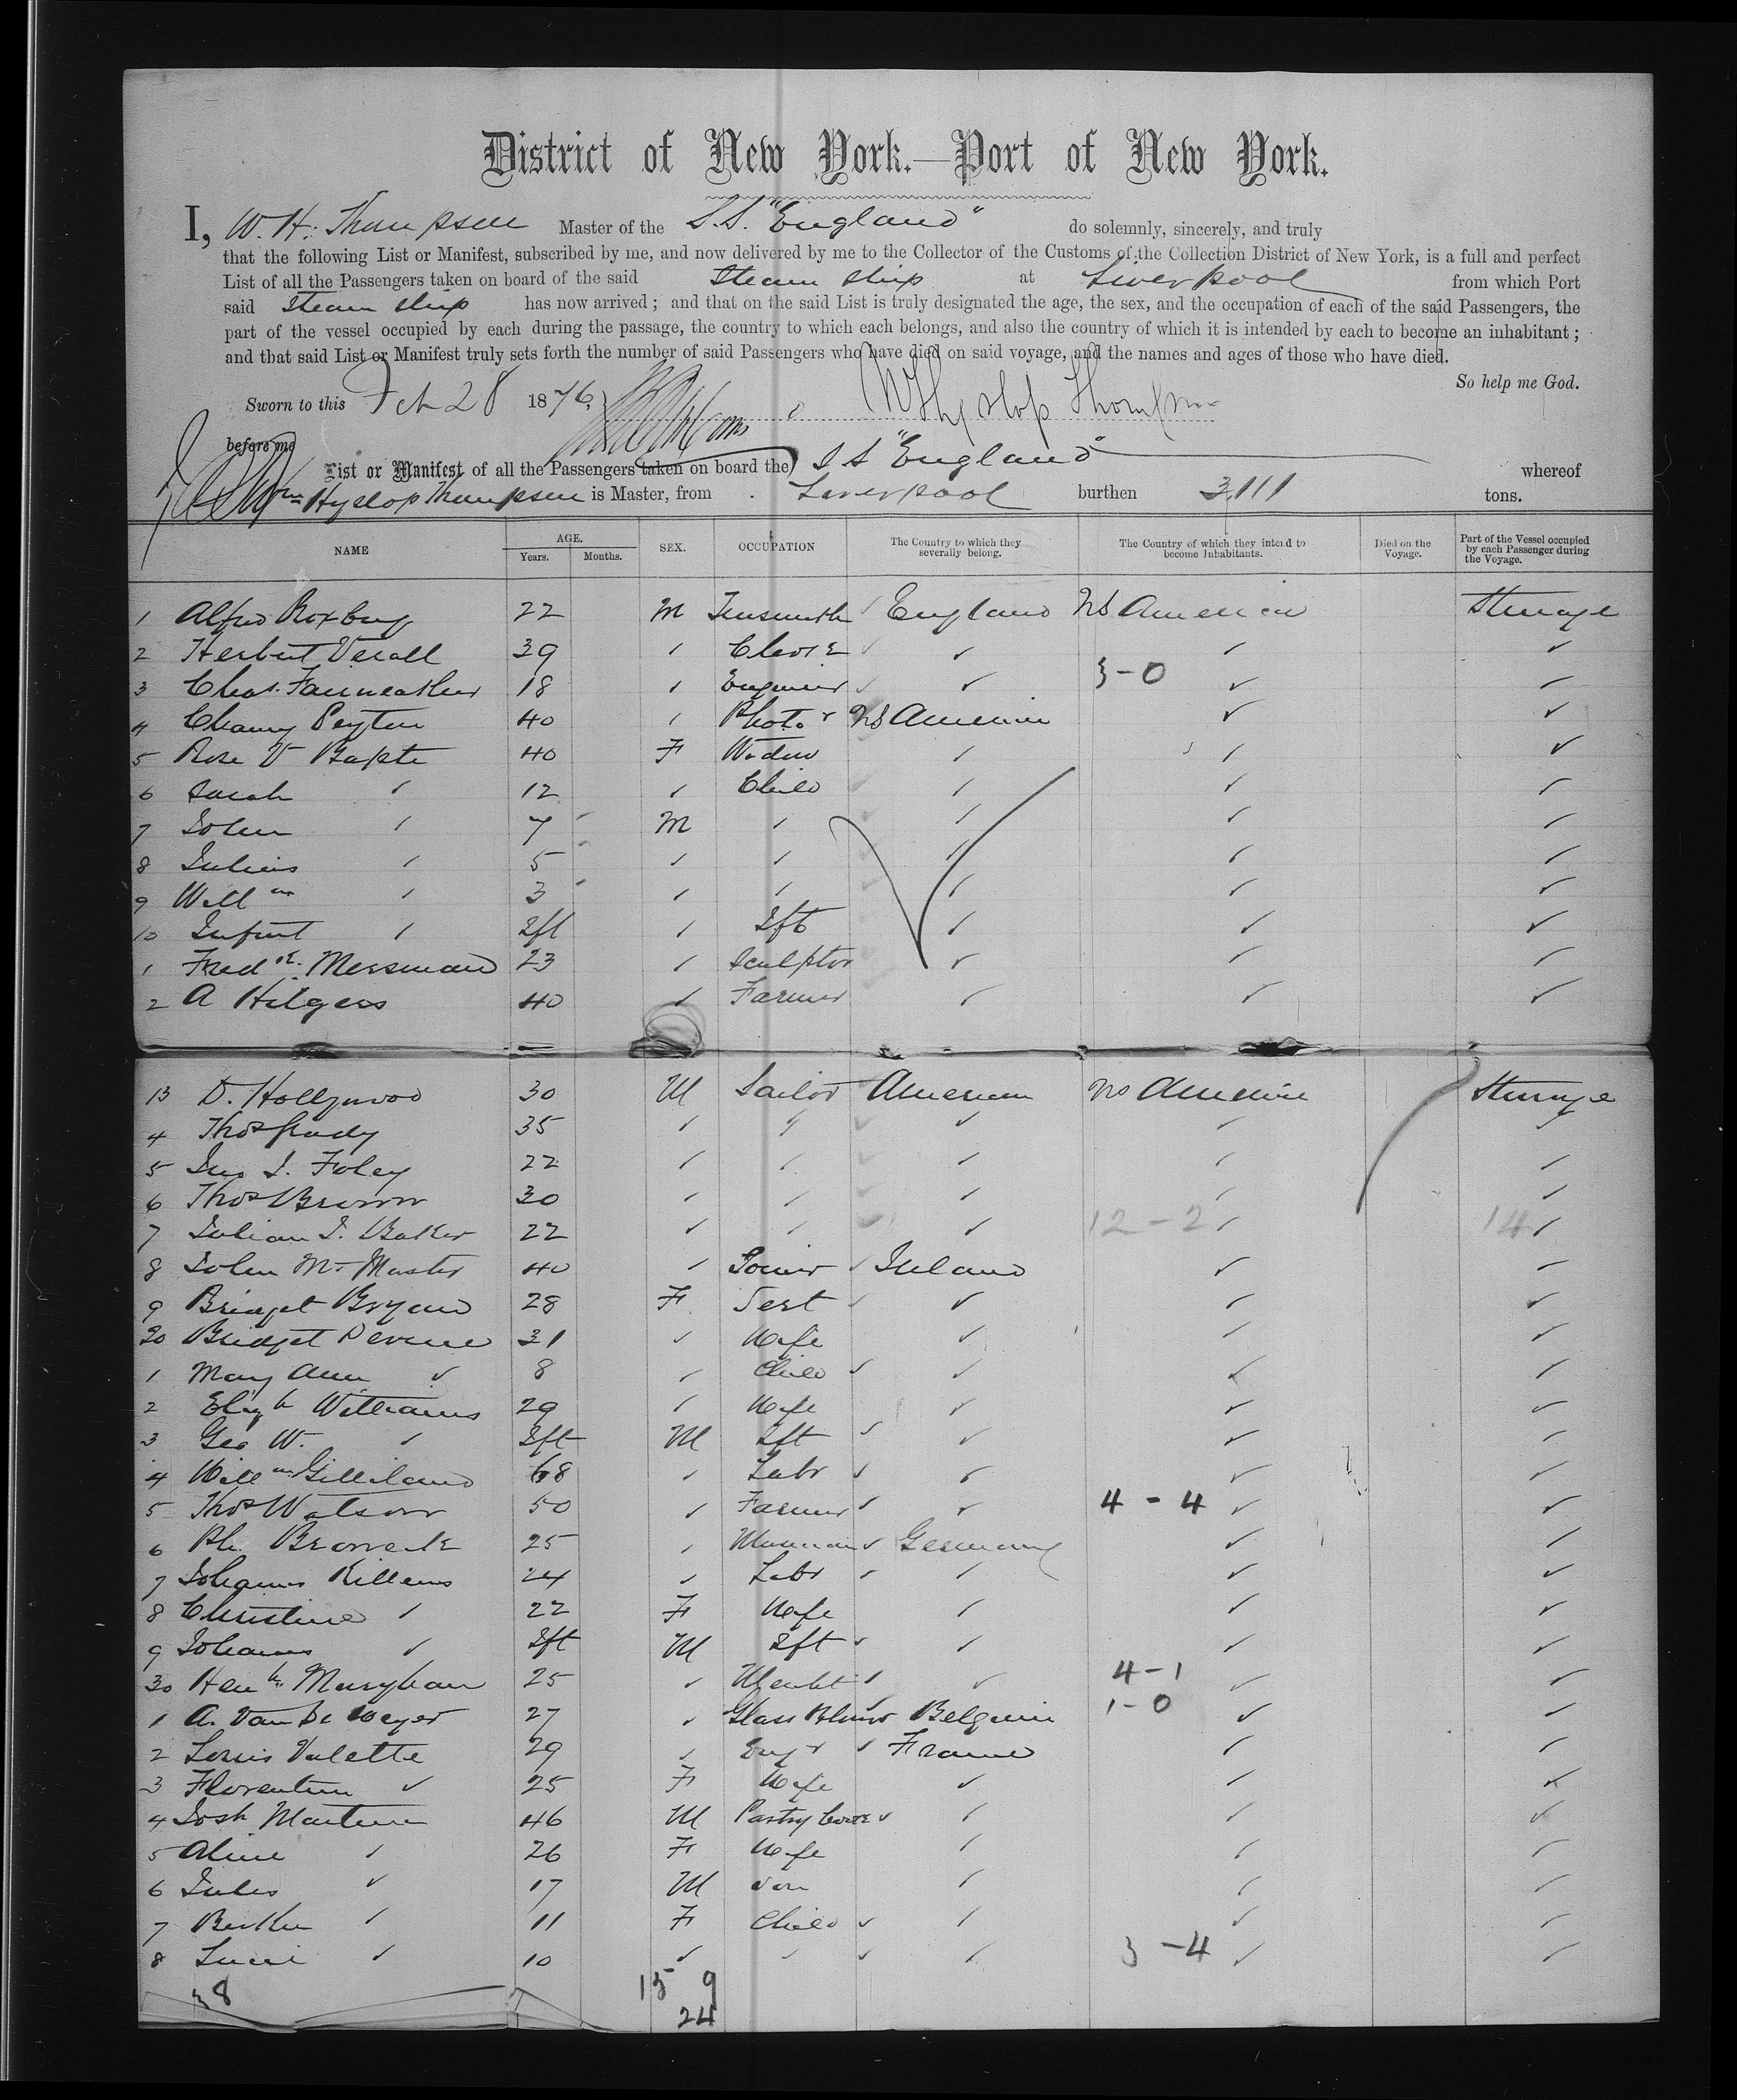 District of New York.—Port of New York.
I, W. H. Thompson Master of the S.S. "England" do solemnly, sincerely, and truly
that the following List or Manifest, subscribed by me, and now delivered by me to the Collector of the Customs of the Collection District of New York, is a full and perfect
List of all the Passengers taken on board of the said Steam Ship at Liverpool from which Port
said Steam Ship has now arrived; and that on the said List is truly designated the age, the sex, and the occupation of each of the said Passengers, the
part of the vessel occupied by each during the passage, the country to which each belongs, and also the country of which it is intended by each to become an inhabitant;
and that said List or Manifest truly sets forth the number of said Passengers who have died on said voyage, and the names and ages of those who have died.
So help me God.
Sworn to this 28 1876 Wm Hyslop Thompson
before me
List or Manifest of all the Passengers taken on board the S S "England" whereof
Wm Hyslop Thompson is Master, from Liverpool burthen 3,111 tons.
NAME AGE. Years. Months. SEX. OCCUPATION The Country to which they severally belong. The Country of which they intend to become Inhabitants. Died on the Voyage. Part of the Vessel occupied by each Passenger during the Voyage.
1 Alfred Roxburg 22 M Tinsmith England NS America Steerage
2 Herbert Verall 39 ✓ Clerk ✓ ✓ ✓
3 Chas. Fairweather 18 ✓ Engineer ✓ 3-0 ✓ ✓
4 Peyton 40 ✓ Photo r NS America ✓ ✓
5 Rose V Bapte 40 F Widow ✓ ✓ ✓
6 Sarah ✓ 12 ✓ Child ✓ ✓ ✓
7 John ✓ 7 M ✓ ✓ ✓ ✓
8 Julius ✓ 5 ✓ ✓ ✓ ✓ ✓
9 Will m ✓ 3 ✓ ✓ ✓ ✓ ✓
10 Infant ✓ Ift ✓ Ift ✓ ✓ ✓
1 Fred k. Mersman 23 ✓ Sculptor ✓ ✓ ✓
2 A Hilgers 40 ✓ Farmer ✓ ✓ ✓
13 D. Hollywood 30 M Sailor American NS America Steerage
4 Thos Grady 35 ✓ ✓ ✓ ✓ ✓
5 Jno J. Foley 22 ✓ ✓ ✓ ✓ ✓
6 Thos Brown 30 ✓ ✓ ✓ ✓ ✓
7 Julian J. 22 ✓ ✓ ✓ 12-2 ✓ 14 ✓
8 John McMaster 40 ✓ Joiner Ireland ✓ ✓
9 Bridget Bryan 28 F Servt ✓ ✓ ✓
20 Bridget Devine 31 ✓ Wife ✓ ✓ ✓
1 Mary Ann ✓ 8 ✓ Child ✓ ✓ ✓
2 Eliz h Williams 29 ✓ Wife ✓ ✓ ✓
3 Geo W. ✓ Ift M Ift ✓ ✓ ✓
4 Will m Gilliland 68 ✓ Labr ✓ ✓ ✓
5 Thos Watson 50 ✓ Farmer ✓ 4-4 ✓ ✓
6 25 ✓ Germany ✓ ✓
7 Johannes Killems 24 ✓ Labr ✓ ✓ ✓
8 Christine ✓ 22 F Wife ✓ ✓ ✓
9 Johannes ✓ Ift M Ift ✓ ✓ ✓
30 25 ✓ ✓ 4-1 ✓ ✓
1 A. Van De Meyer 27 ✓ Glass Blower Belgium 1-0 ✓ ✓
2 Louis Valette 29 ✓ Eng r France ✓ ✓
3 Florentine ✓ 25 F Wife ✓ ✓ ✓
4 Josh Martin 46 M Pastry Cook ✓ ✓ ✓
5 Aline ✓ 26 F Wife ✓ ✓ ✓
6 Jules ✓ 17 M Son ✓ ✓ ✓
7 Berthe ✓ 11 F Child ✓ ✓ ✓
8 Lucie ✓ 10 ✓ ✓ ✓ 3-4 ✓ ✓
38 15 9
24